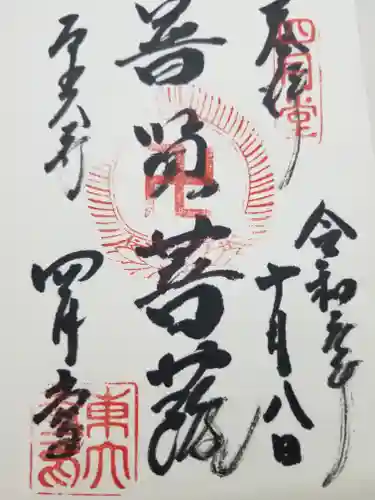 奉拝
四月堂
令和元年
十月八日
普賢菩薩
卍
東大寺
四月堂